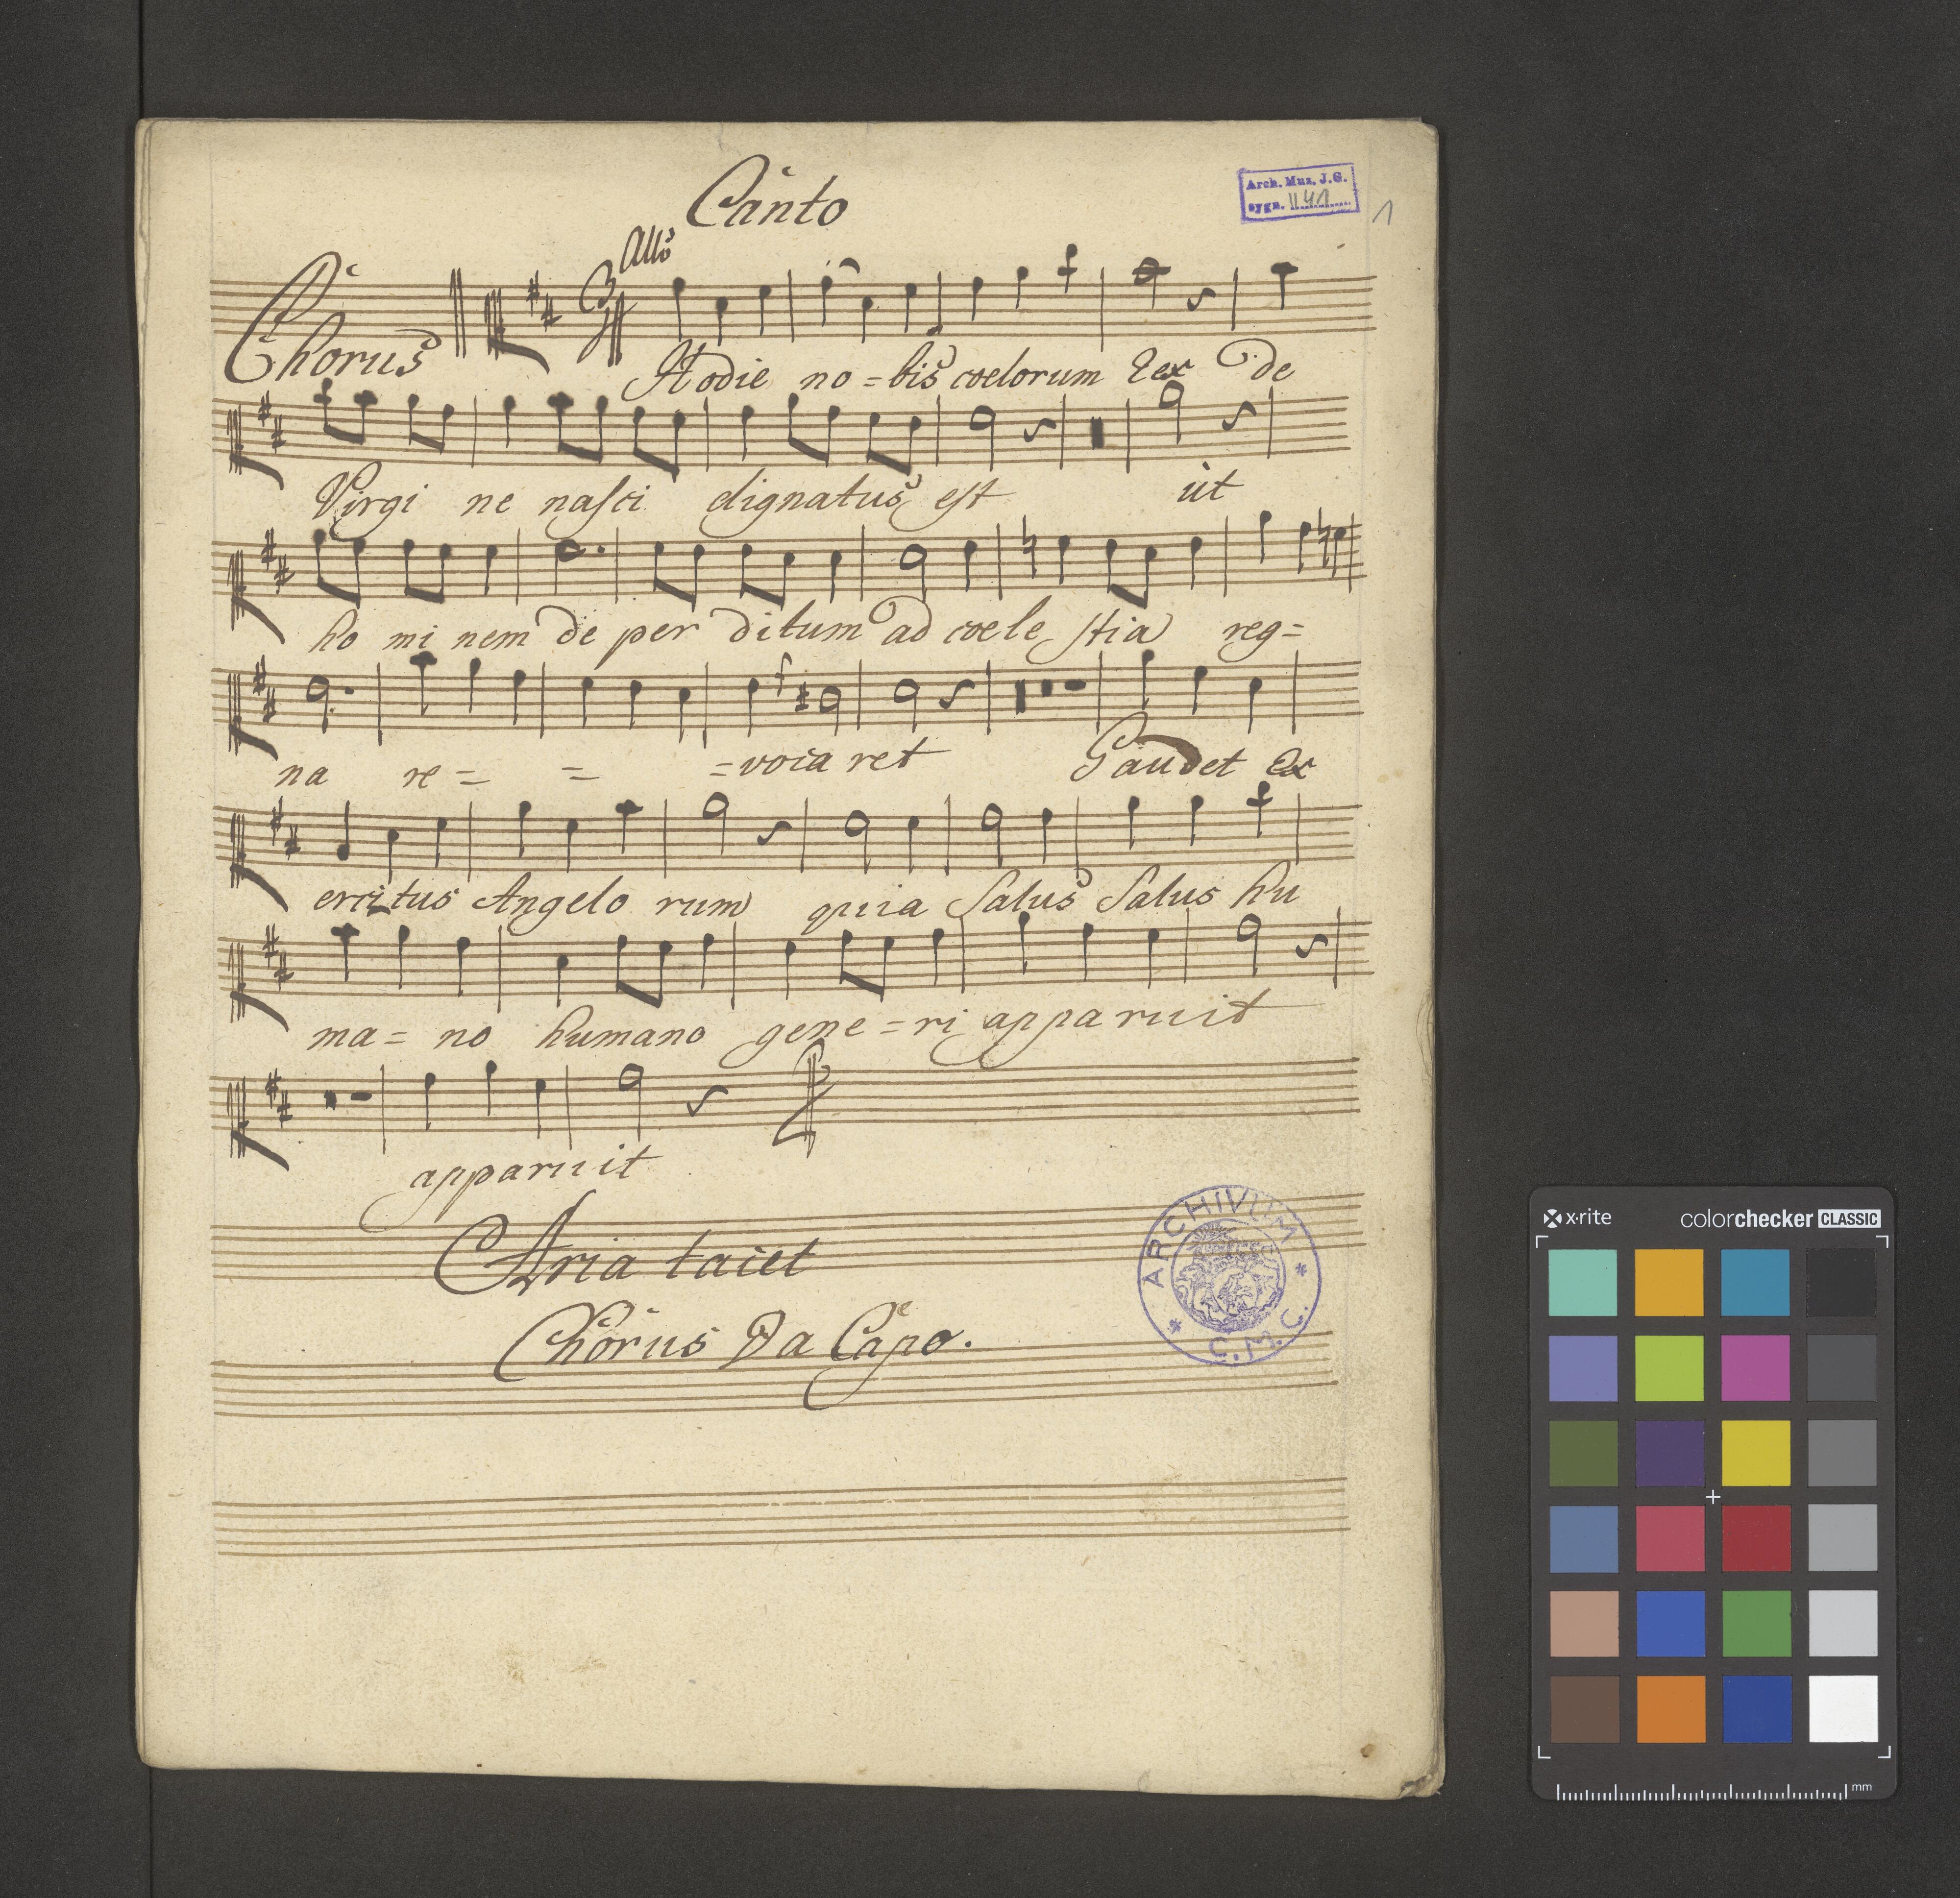 Canto
Arch. Muz. J.G.
sygn. II 41
1
Allo
Chorus
Hodie no=bis coelorum Rex de
Virgi ne nasci dignatus est ut
ho mi nem de per ditum ad coele stia reg=
na re= = =voca ret Gaudet Ex
ercitus Angelo rum quia Salus Salus hu
ma= no humano gene=ri apparuit
apparuit
Aria tacet
Chorus Da Capo.
ARCHIVUM
* C.M.C. *
x·rite colorchecker CLASSIC
mm